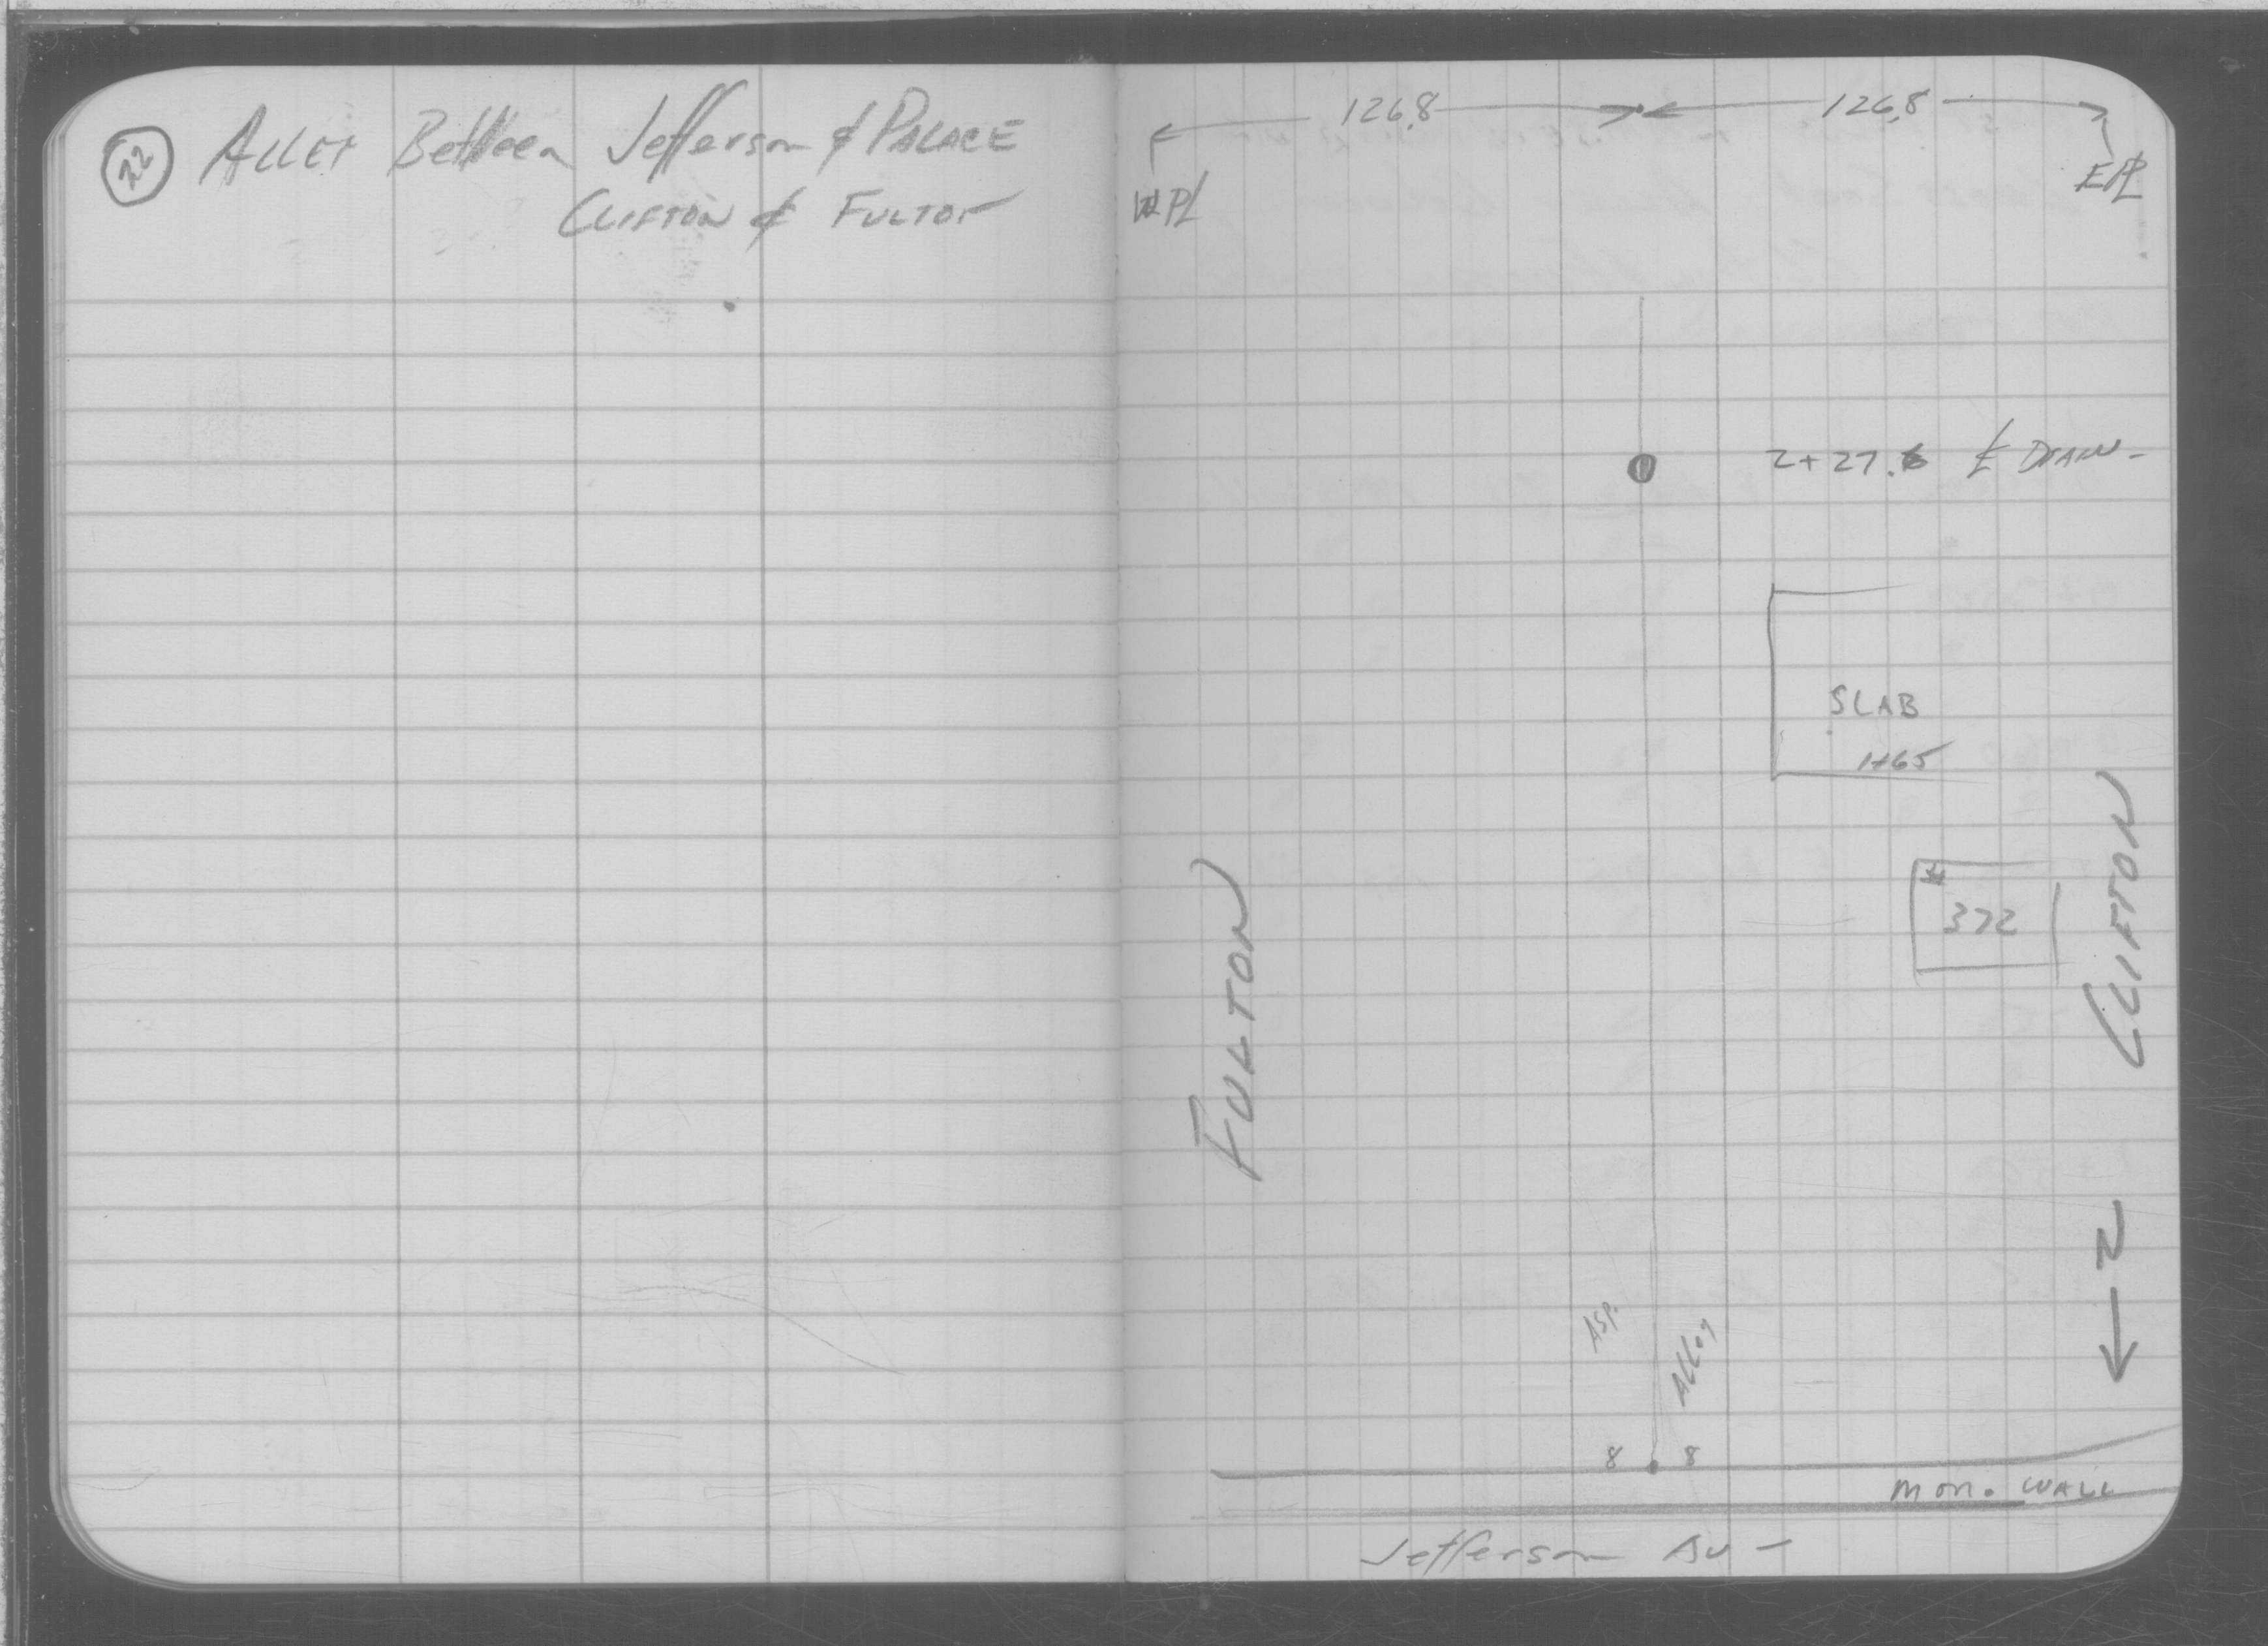 22 Alley Between Jefferson & PALACE
CLIFTON & FULTON
126.8 126.8
WPL EPL
2+27.6 ℄ DRAIN
SLAB
1+65
372
FULTON
CLIFTON
N
ASP.
Alley
8 8
mon. WALL
Jefferson Av